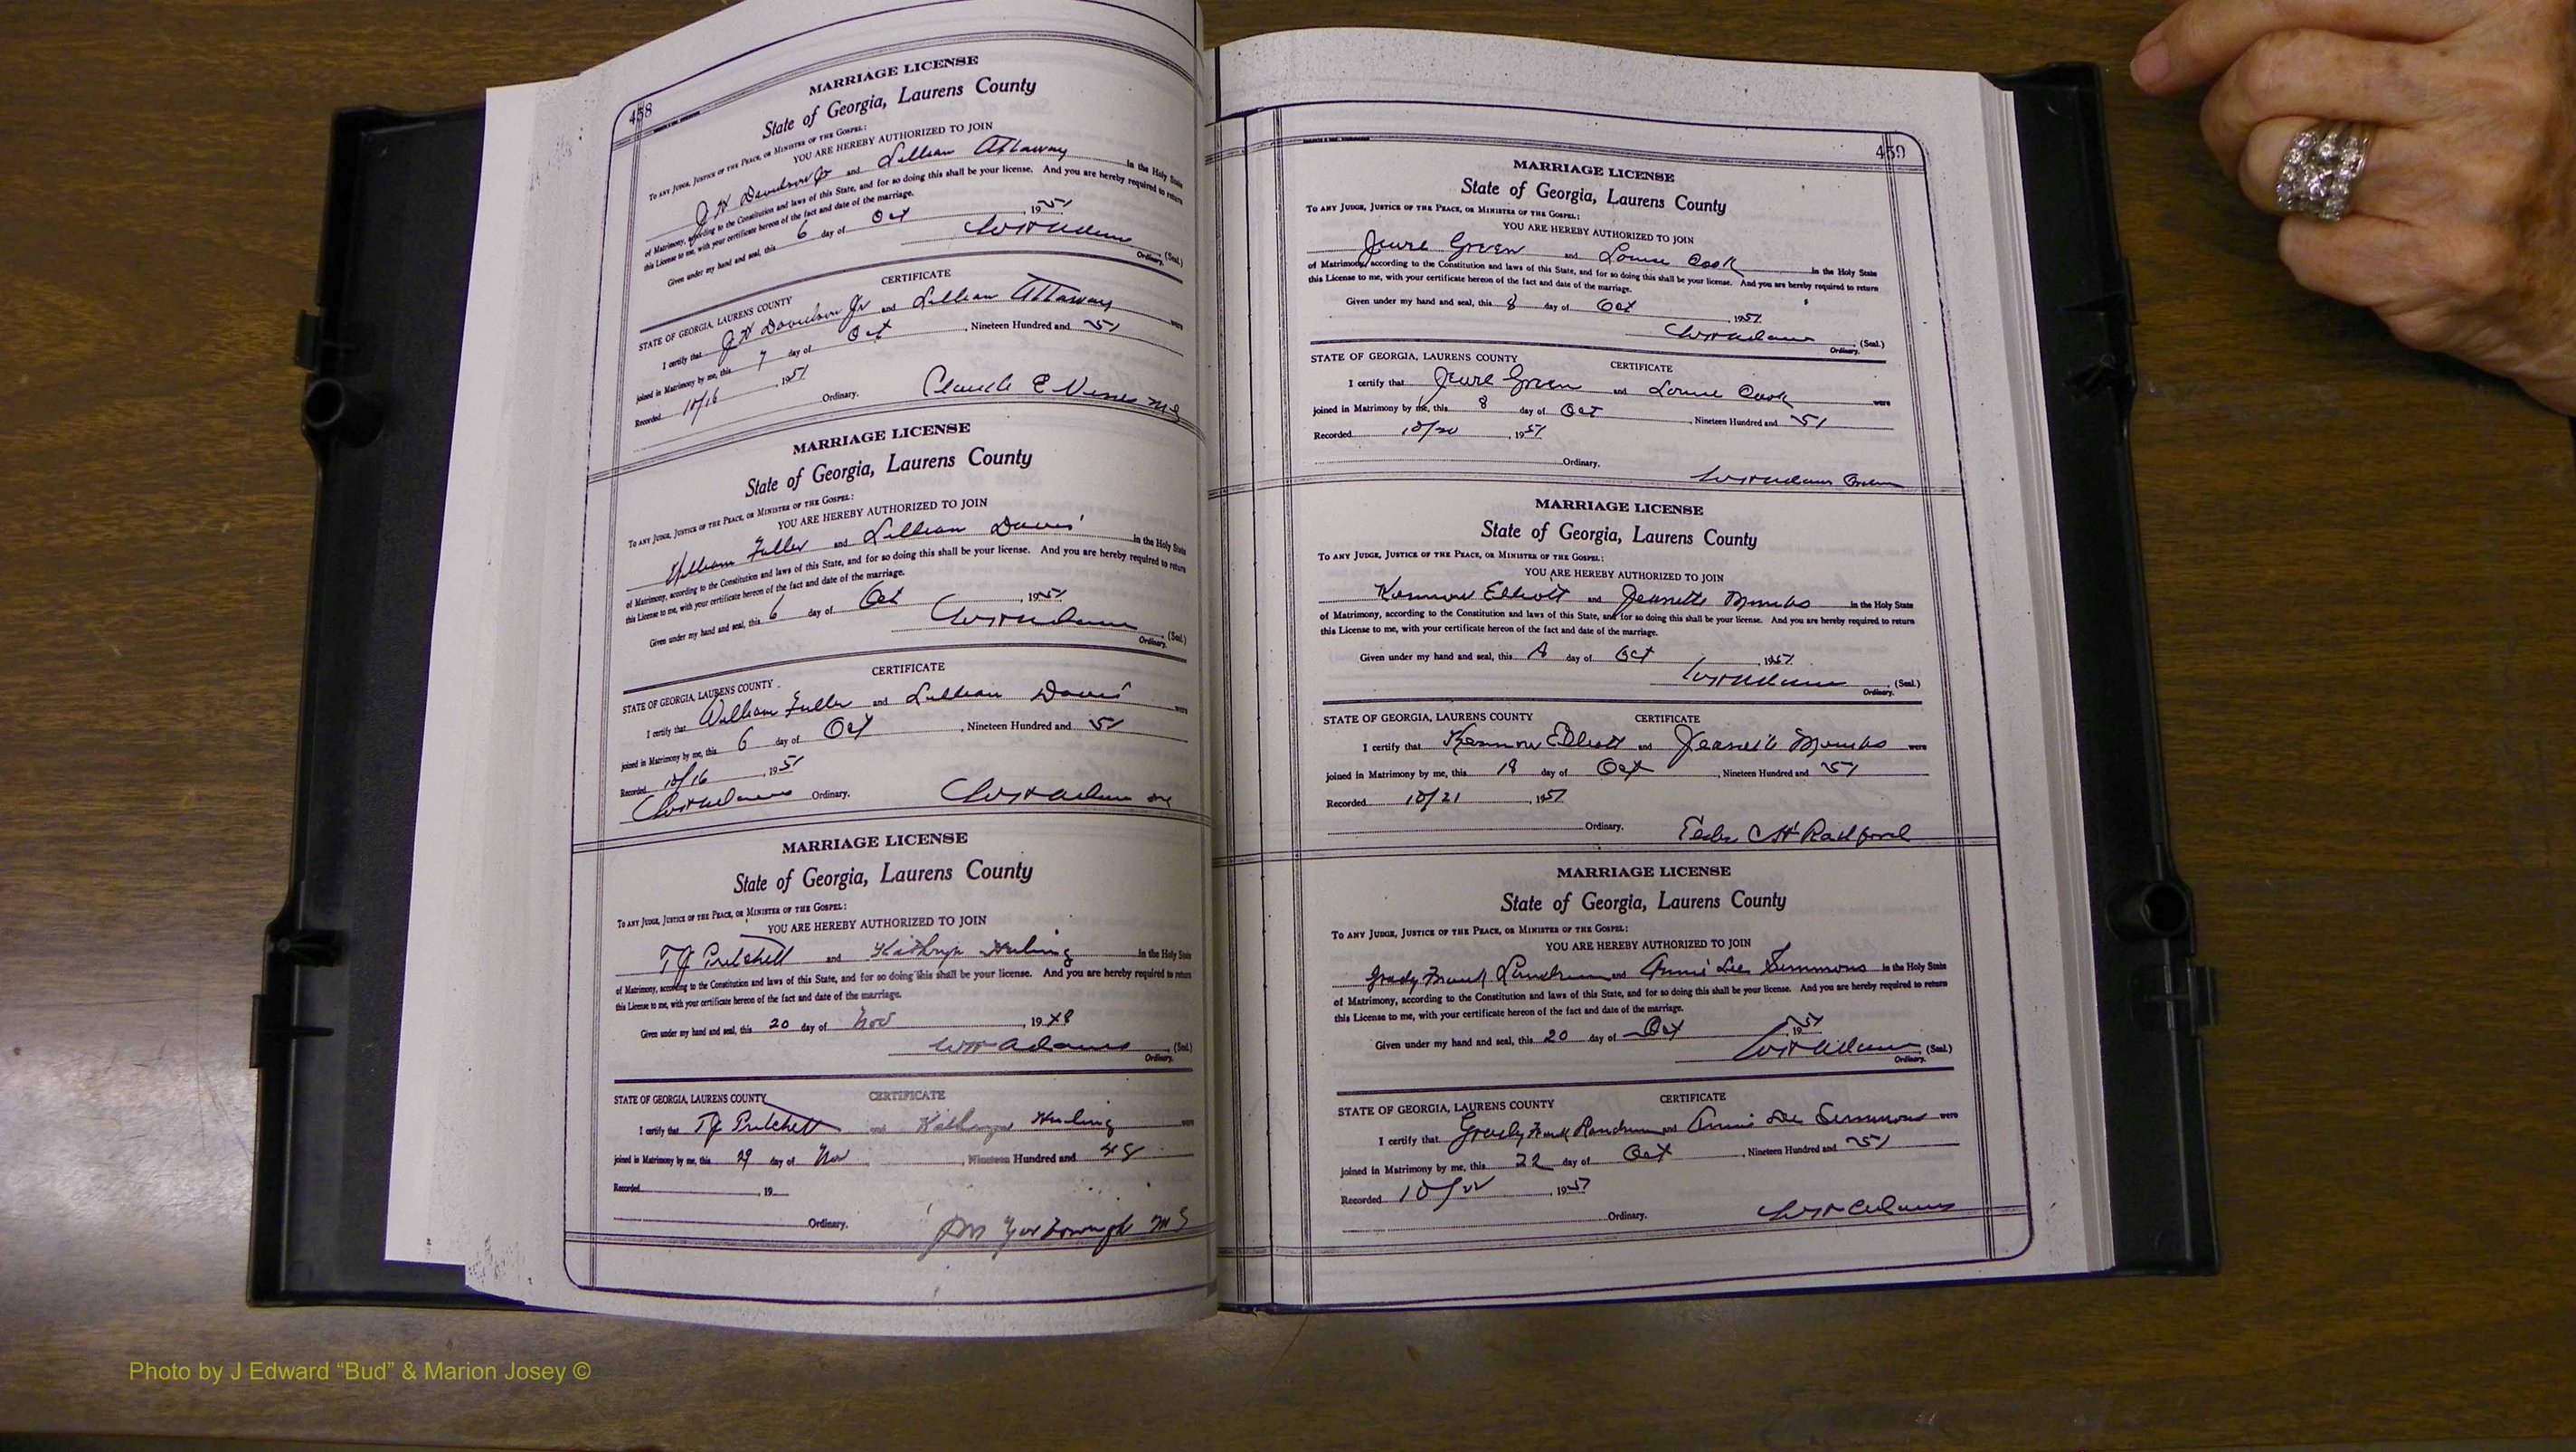 458
MARRIAGE LICENSE
State of Georgia, Laurens County
To any Judge, Justice of the Peace, or Minister of the Gospel:
YOU ARE HEREBY AUTHORIZED TO JOIN
J H Davidson Jr and Lillian Attaway in the Holy State
of Matrimony, according to the Constitution and laws of this State, and for so doing this shall be your license. And you are hereby required to return
this License to me, with your certificate hereon of the fact and date of the marriage.
Given under my hand and seal, this 6 day of Oct , 1951
(Seal.)
Ordinary.
CERTIFICATE
STATE OF GEORGIA, LAURENS COUNTY
I certify that J H Davidson Jr and Lillian Attaway were
joined in Matrimony by me, this 7 day of Oct , Nineteen Hundred and 51
Recorded 10/16 , 1951
Ordinary. Claude E Vines MG
MARRIAGE LICENSE
State of Georgia, Laurens County
To any Judge, Justice of the Peace, or Minister of the Gospel:
YOU ARE HEREBY AUTHORIZED TO JOIN
William Fuller and Lillian Davis in the Holy State
of Matrimony, according to the Constitution and laws of this State, and for so doing this shall be your license. And you are hereby required to return
this License to me, with your certificate hereon of the fact and date of the marriage.
Given under my hand and seal, this 6 day of Oct , 1951
(Seal.)
Ordinary.
CERTIFICATE
STATE OF GEORGIA, LAURENS COUNTY
I certify that William Fuller and Lillian Davis were
joined in Matrimony by me, this 6 day of Oct , Nineteen Hundred and 51
Recorded 10/16 , 1951
Ordinary.
MARRIAGE LICENSE
State of Georgia, Laurens County
To any Judge, Justice of the Peace, or Minister of the Gospel:
YOU ARE HEREBY AUTHORIZED TO JOIN
T J Pritchett and Kathryn Huling in the Holy State
of Matrimony, according to the Constitution and laws of this State, and for so doing this shall be your license. And you are hereby required to return
this License to me, with your certificate hereon of the fact and date of the marriage.
Given under my hand and seal, this 20 day of Nov , 1948
Adams (Seal.)
Ordinary.
CERTIFICATE
STATE OF GEORGIA, LAURENS COUNTY
I certify that T J Pritchett and Kathryn Huling were
joined in Matrimony by me, this 29 day of Nov , Nineteen Hundred and 48
Recorded , 19
Ordinary. Yarbrough MG
459
MARRIAGE LICENSE
State of Georgia, Laurens County
To any Judge, Justice of the Peace, or Minister of the Gospel:
YOU ARE HEREBY AUTHORIZED TO JOIN
Green and Louise Cook in the Holy State
of Matrimony, according to the Constitution and laws of this State, and for so doing this shall be your license. And you are hereby required to return
this License to me, with your certificate hereon of the fact and date of the marriage.
Given under my hand and seal, this 8 day of Oct , 1951
(Seal.)
Ordinary.
STATE OF GEORGIA, LAURENS COUNTY CERTIFICATE
I certify that Green and Louise Cook were
joined in Matrimony by me, this 8 day of Oct , Nineteen Hundred and 51
Recorded 10/20 , 1951
Ordinary.
MARRIAGE LICENSE
State of Georgia, Laurens County
To any Judge, Justice of the Peace, or Minister of the Gospel:
YOU ARE HEREBY AUTHORIZED TO JOIN
Elliott and Jeanette in the Holy State
of Matrimony, according to the Constitution and laws of this State, and for so doing this shall be your license. And you are hereby required to return
this License to me, with your certificate hereon of the fact and date of the marriage.
Given under my hand and seal, this day of Oct , 1951
(Seal.)
Ordinary.
STATE OF GEORGIA, LAURENS COUNTY CERTIFICATE
I certify that Elliott and Jeanette were
joined in Matrimony by me, this 18 day of Oct , Nineteen Hundred and 51
Recorded 10/21 , 1951
Ordinary. Radford
MARRIAGE LICENSE
State of Georgia, Laurens County
To any Judge, Justice of the Peace, or Minister of the Gospel:
YOU ARE HEREBY AUTHORIZED TO JOIN
Grady Frank Landrum and Annie Lee Simmons in the Holy State
of Matrimony, according to the Constitution and laws of this State, and for so doing this shall be your license. And you are hereby required to return
this License to me, with your certificate hereon of the fact and date of the marriage.
Given under my hand and seal, this 20 day of Oct 1951
(Seal.)
Ordinary.
STATE OF GEORGIA, LAURENS COUNTY CERTIFICATE
I certify that Grady Frank Landrum and Annie Lee Simmons were
joined in Matrimony by me, this 22 day of Oct , Nineteen Hundred and 51
Recorded 10/22 , 1951
Ordinary.
Photo by J Edward “Bud” & Marion Josey ©